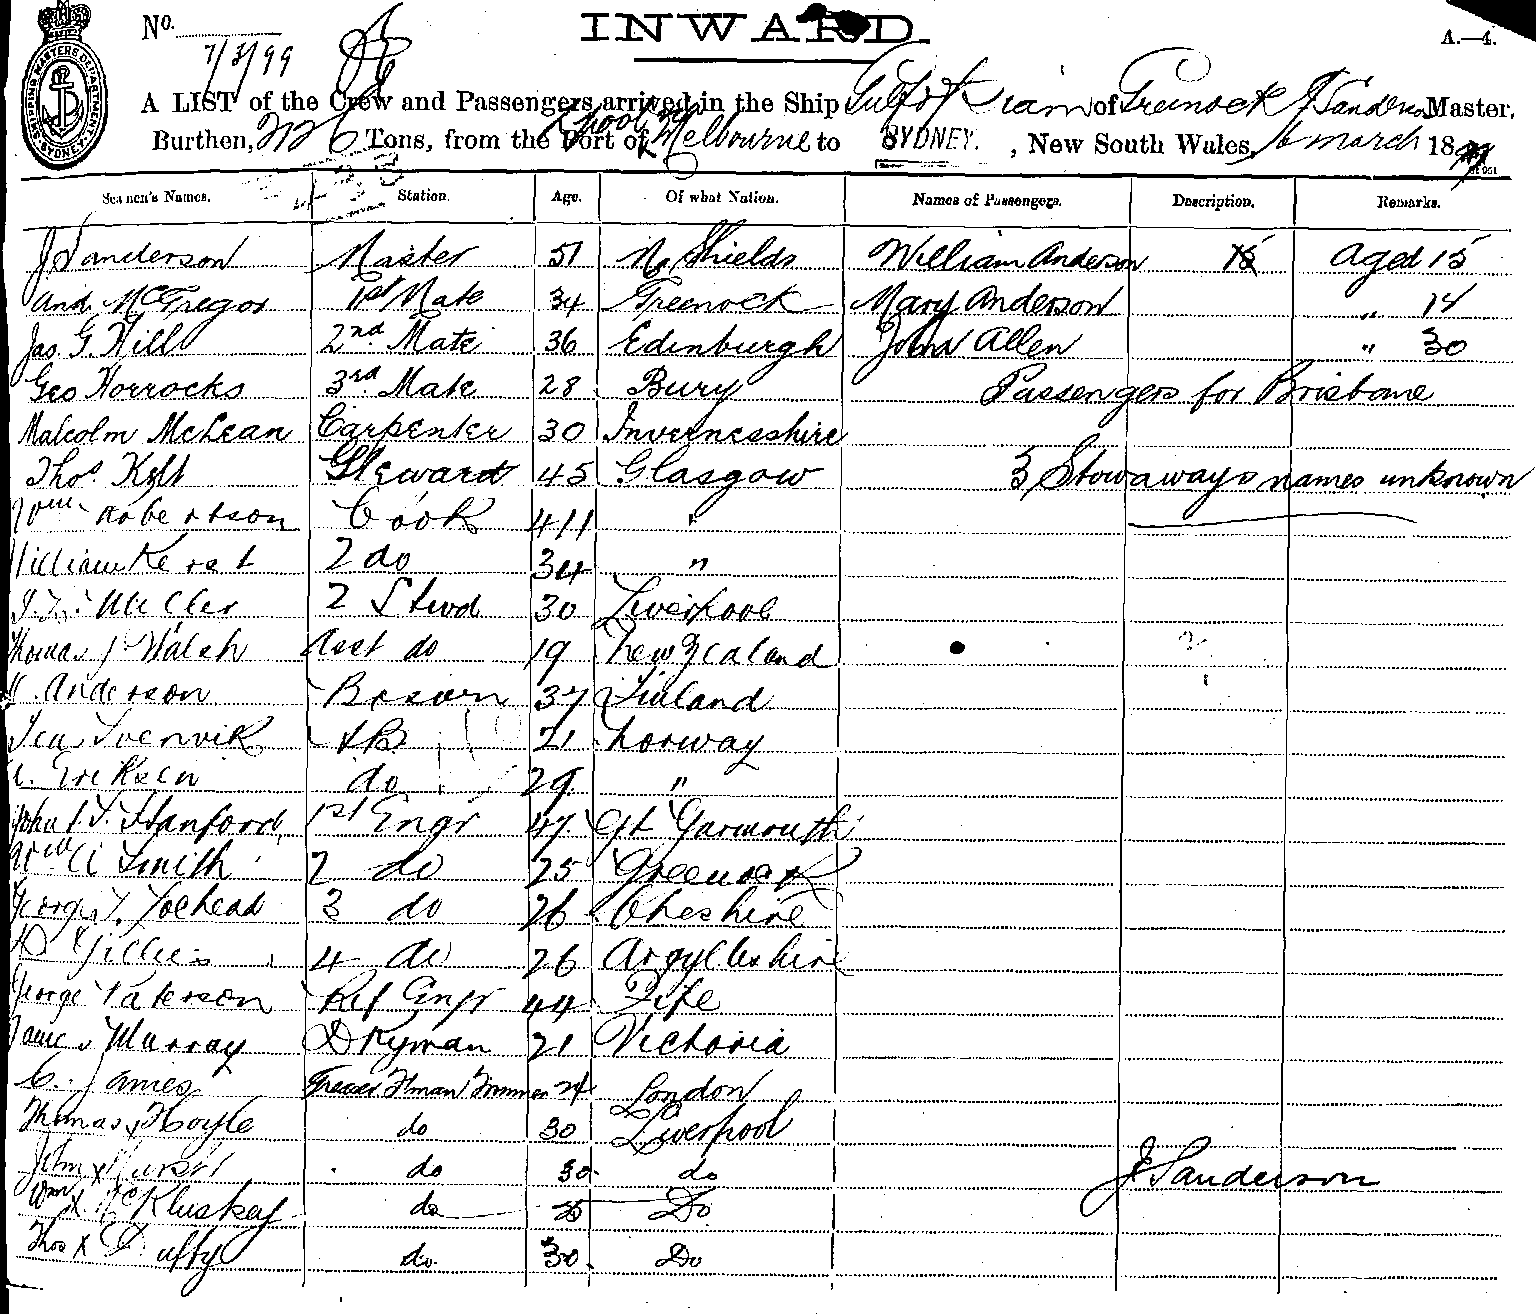 INWARD
No.
A.—4.
7/3/99
SHIPPING MASTERS DEPARTMENT SYDNEY.
A LIST of the Crew and Passengers arrived in the Ship Gulf of Siam of Greenock J Sanderson Master,
Burthen, Tons, from the Port of Melbourne to SYDNEY. , New South Wales, 6 March 1899
Seamen's Names. Station. Age. Of what Nation. Names of Passengers. Description. Remarks.
J Sanderson Master 51 No Shields William Anderson 15 Aged 15
And McGregor 1st Mate 34 Greenock Mary Anderson " 14
Jas. G. Hill 2nd Mate 36 Edinburgh John Allen " 30
Geo Horrocks 3rd Mate 28 Bury Passengers for Brisbane
Malcolm McLean Carpenter 30 Invernesshire
Thos. Kelt Steward 45 Glasgow 3 Stowaways names unknown
Wm Robertson Cook "
William 2 do 34 "
Miller 2 Stwd 30 Liverpool
Thomas J Walsh Asst do 19 New Zealand
Anderson Bosun 37 Finland
AB 21 Norway
Eriksen do 29 "
John Stanford 1st Engr 47 Gt Yarmouth
Wm A Smith 2 do 25 Greenock
George Lochead 3 do 26 Cheshire
D Gillies 4 do 26 Argylleshire
George Paterson Ref Engr 44 Fife
James Murray Dkyman 21 Victoria
C. James Greaser Fman Trimmer 24 London
Thomas x Hoyle do 30 Liverpool
John x do 30 do J Sanderson
Wm x McKluskey do 25 Do
Thos x Duffy do 30 Do